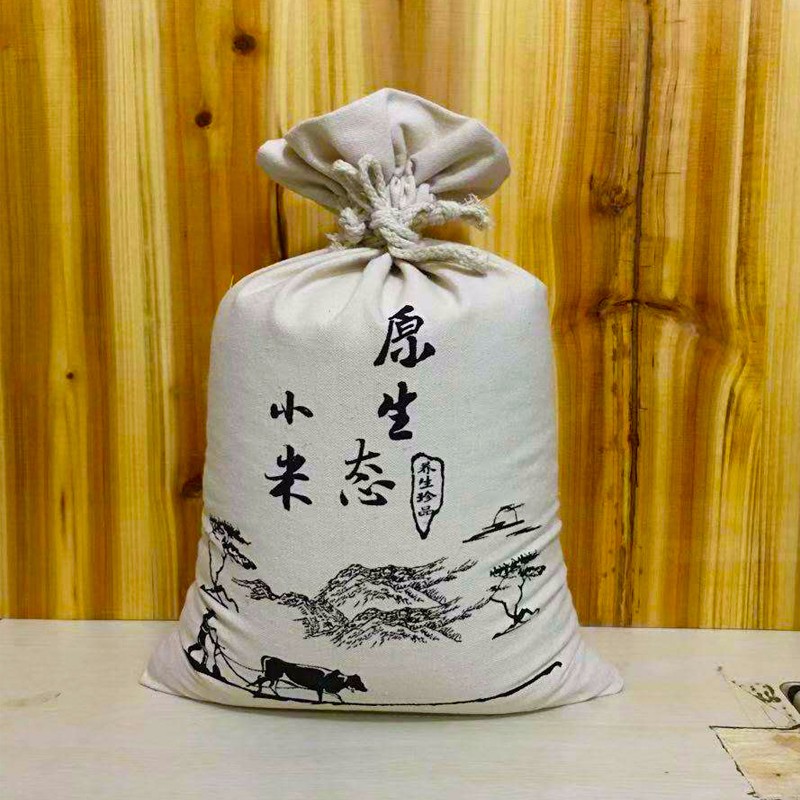 原生态
小米
养生珍品